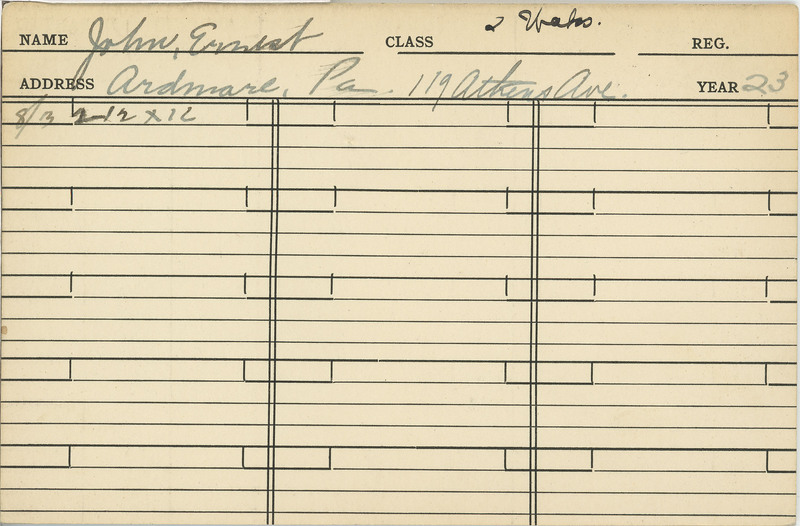 NAME John, Ernest CLASS 2 Weeks. REG.
ADDRESS Ardmore, Pa. 119 Athens Ave. YEAR 23
8/3 2-12 x 12